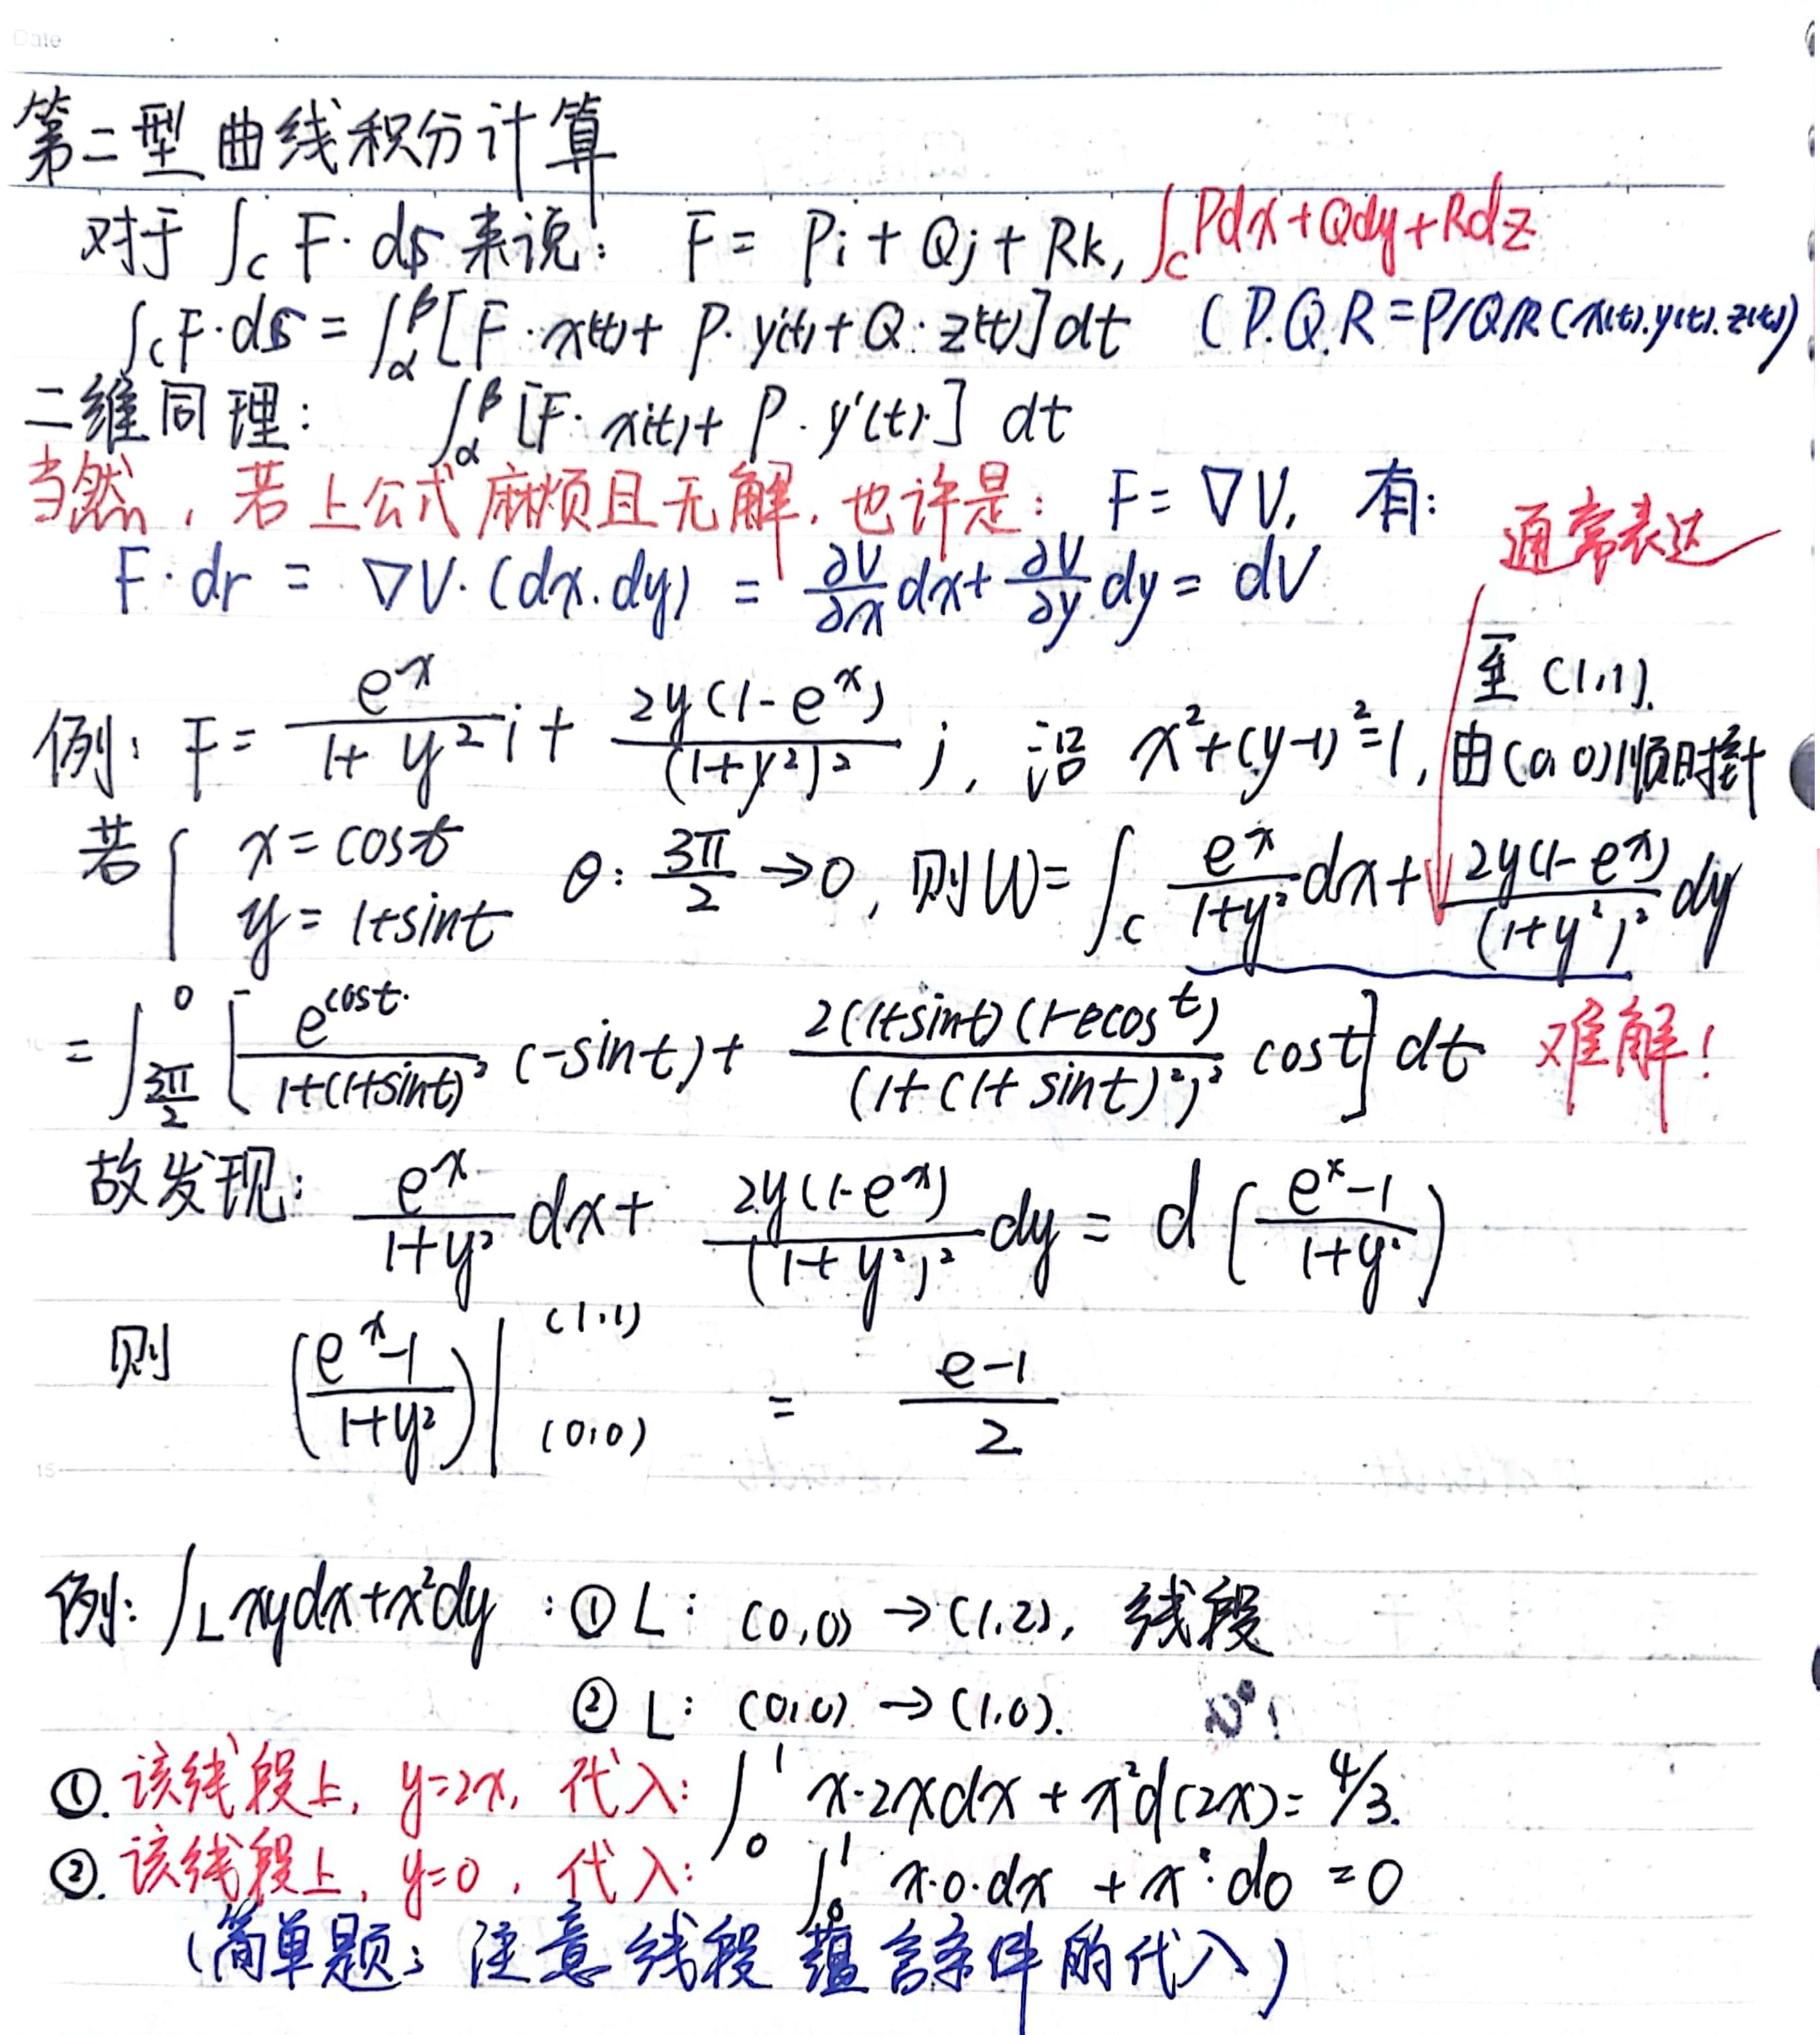 Date
第二型曲线积分计算
对于 ∫_C F·ds 来说: F = Pi + Qj + Rk, ∫_C Pdx+Qdy+Rdz
∫_C F·ds = ∫_α^β [F·x'(t) + P·y'(t) + Q·z'(t)]dt (P.Q.R = P/Q/R(x(t).y(t).z(t))
二维同理: ∫_α^β [F·x'(t) + P·y'(t)] dt
当然, 若上公式麻烦且无解, 也许是: F = ∇V, 有:
通常表达
F·dr = ∇V·(dx.dy) = ∂V/∂x dx + ∂V/∂y dy = dV
例: F = e^x/(1+y²) i + 2y(1-e^x)/(1+y²)² j, 沿 x²+(y-1)²=1, 由(0,0)顺时针
至 (1,1).
若 { x = cost y = 1+sint θ: 3π/2 → 0, 则 W = ∫_C e^x/(1+y²) dx + 2y(1-e^x)/(1+y²)² dy
= ∫_{3π/2}^0 [e^{cost}/(1+(1+sint)²) (-sint) + 2(1+sint)(1-ecos^t)/(1+(1+sint)²)² cost] dt 难解!
故发现: e^x/(1+y²) dx + 2y(1-e^x)/(1+y²)² dy = d((e^x-1)/(1+y²))
则 ((e^x-1)/(1+y²))|_{(0,0)}^{(1,1)} = (e-1)/2
10
15
例: ∫_L xydx+x²dy : ① L: (0,0) → (1,2), 线段
② L: (0,0) → (1,0).
①. 该线段上, y=2x, 代入: ∫_0^1 x·2xdx + x²d(2x) = 4/3.
②. 该线段上, y=0, 代入: ∫_0^1 x·0·dx + x²·d0 = 0
(简单题; 注意线段蕴含条件的代入)